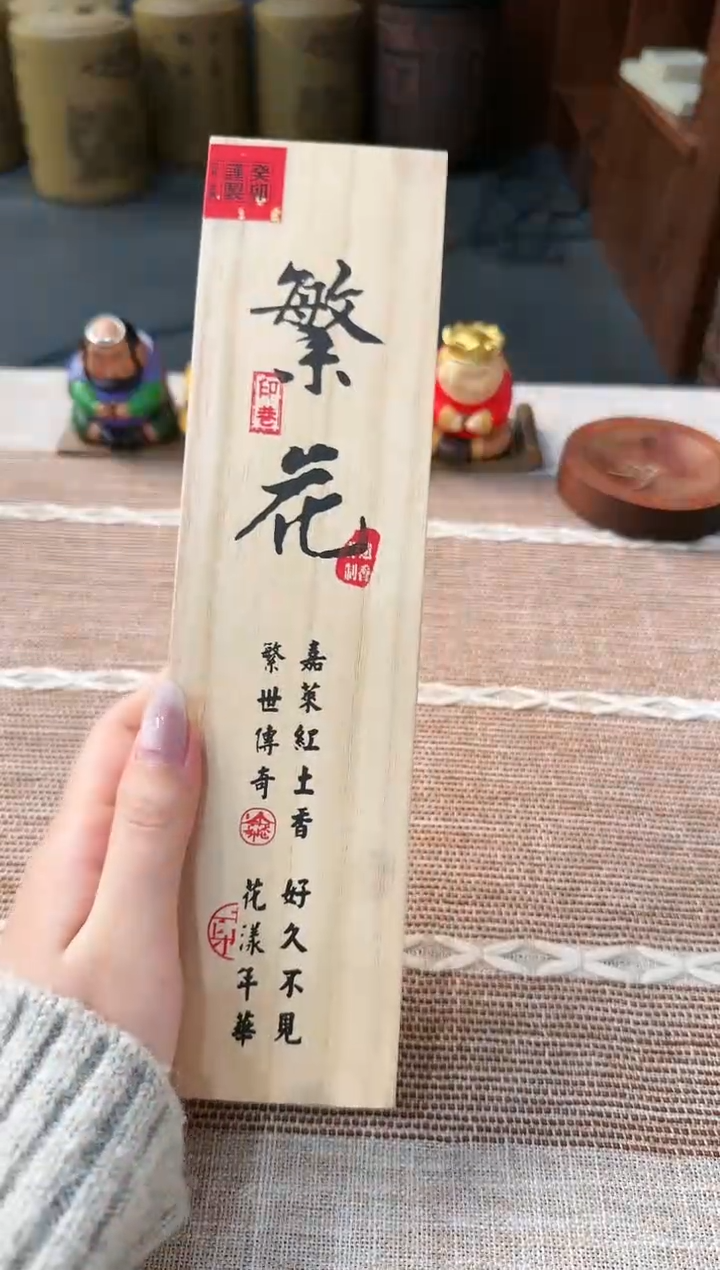 癸卯
謹製
繁花
印巷
制香
嘉萊紅土香
繁世傳奇
好久不見
花漾年華